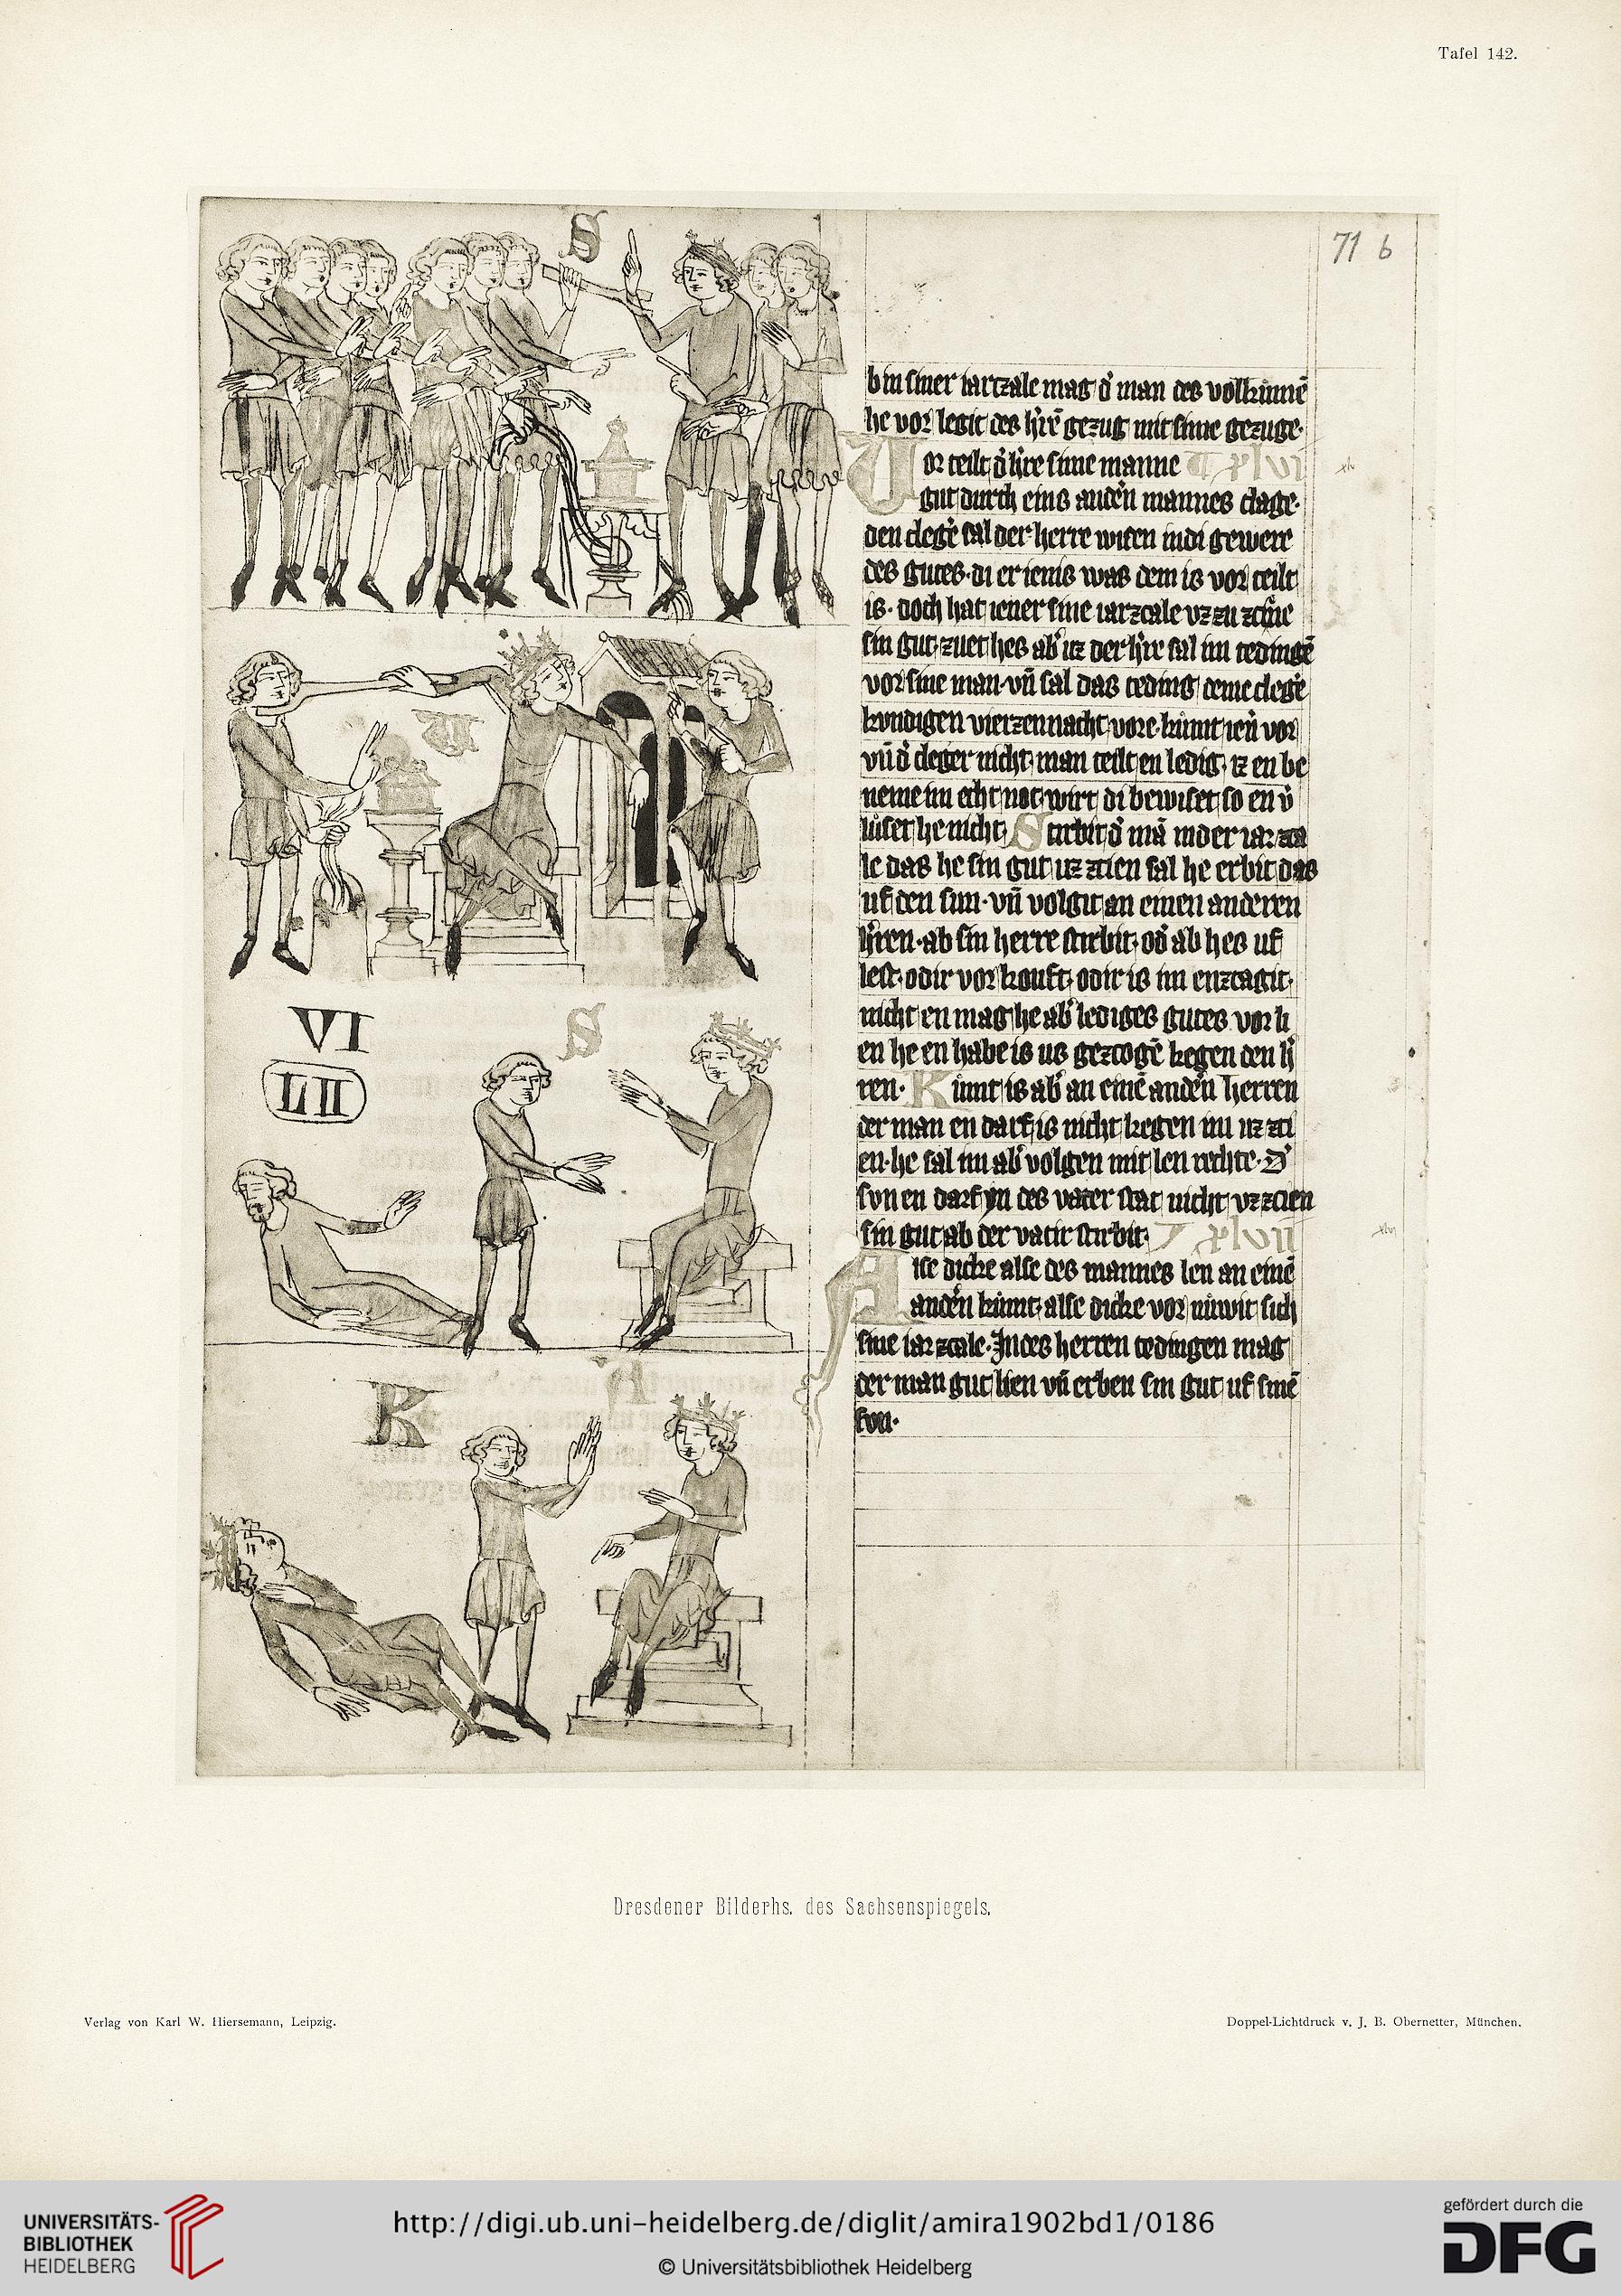 Tafel 142.
71 b
S
bin siner iartzale mag d' man des volkumē
he vor legit des h're gezug mit sime gezuge.
Vor teilt d' h're sime manne xlvi
gut durch eins anden mannes clage.
den cleg' sal der herre wisen in di gewere
des gutes. di er ienis was dem is vor teilt
is. doch hat iener sine iarzcale vz zu zcine
sin gut. zuet hes ab' uz der h're sal im tedinge
vor sine man. vn̄ sal das teding deme clege
kundigen vierzennacht vore. kumt ien' vor
vn̄ d' cleger nicht. man teilt en ledig. iz en be
neme im echt not. wirt di bewiset so en v'
luset he nicht. Stirbit d' mā in der iar zca
le das he sin gut uz zcien sal he erbit das
uf den sun. vn̄ volgit an einen anderen
h'ren. ab sin herre stirbit. od' ab hes uf
lest. odir vor kouft. odir is im enzcagit.
nicht en mag he ab' lediges gutes vor li
en he en habe is us gezcogē kegen den h'
ren. Kumt is ab' an einē anden herren
der man en darf is nicht kegen im uz zci
en. he sal im ab' volgen mit len rechte. D'
son en darf yn des vater stat nicht vz zcien
sin gut ab der vatir stirbit. xlvii
Alse dicke alse des mannes len an einē
anden kumt. alse dicke vor nuwit sich
sine iar zcale. In des herren tedingen mag
der man gut lien vn̄ erben sin gut uf sinē
son.
V
VI
LII
S
K
A
Dresdener Bilderhs. des Sachsenspiegels.
Verlag von Karl W. Hiersemann, Leipzig.
Doppel-Lichtdruck v. J. B. Obernetter, München.
UNIVERSITÄTS-
BIBLIOTHEK
HEIDELBERG
http://digi.ub.uni-heidelberg.de/diglit/amira1902bd1/0186
© Universitätsbibliothek Heidelberg
gefördert durch die
DFG